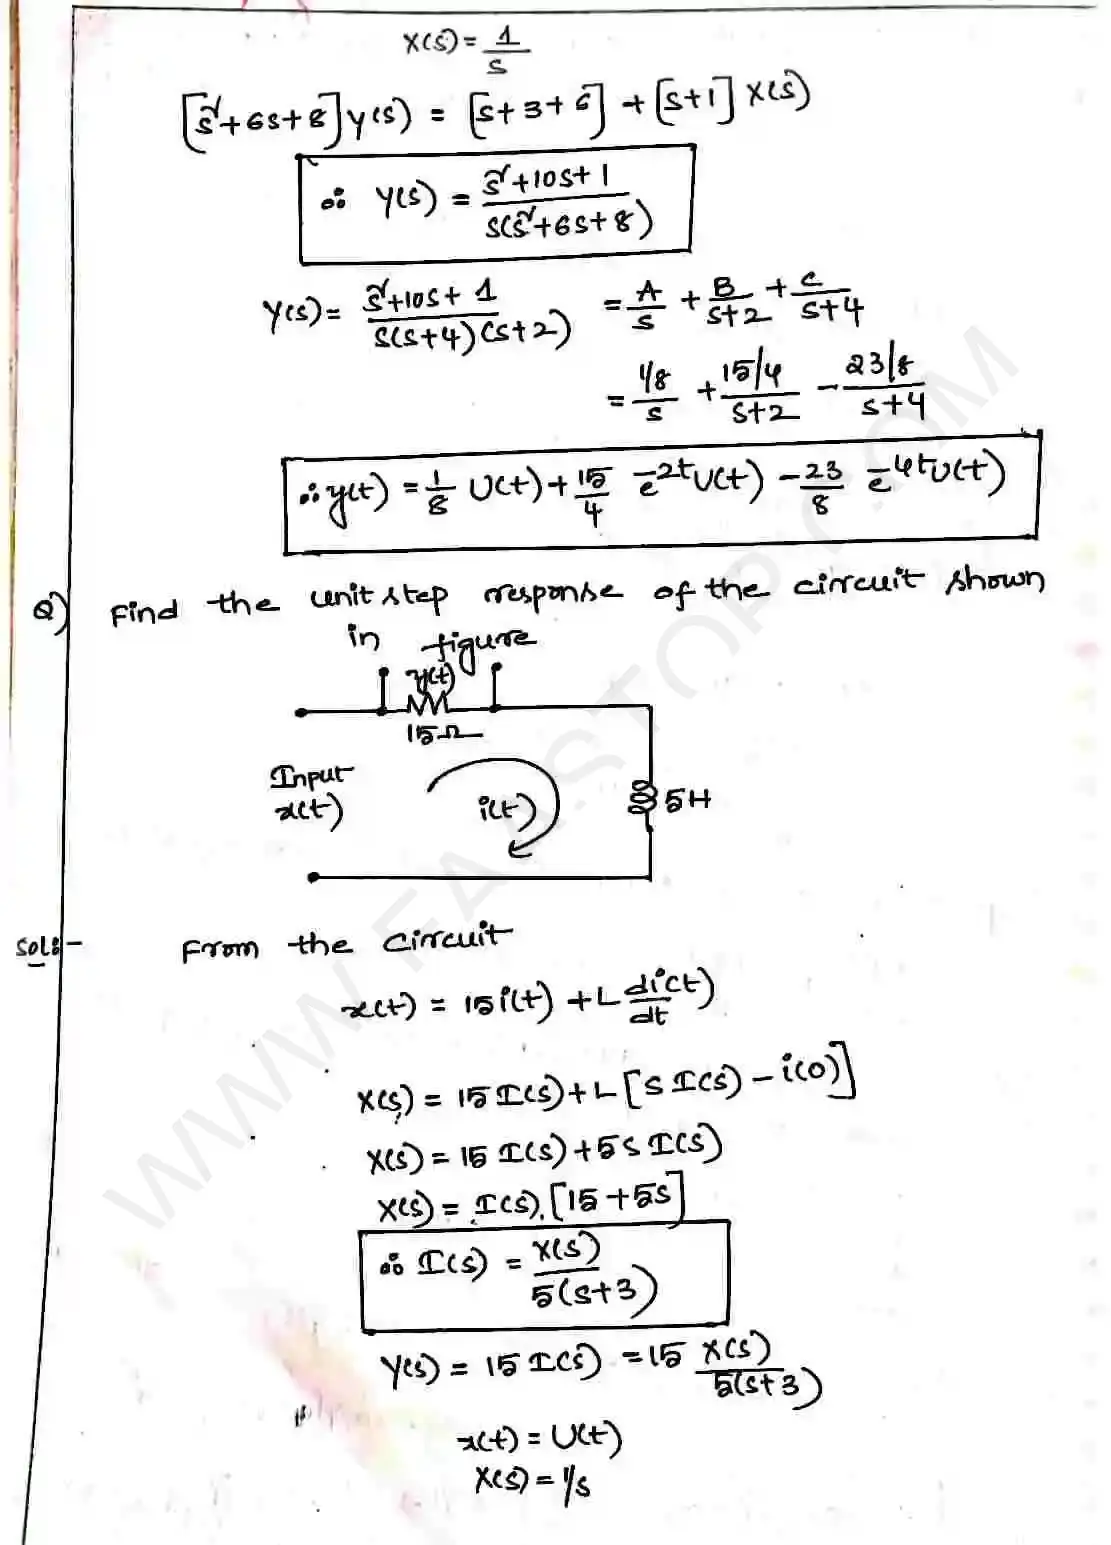 X(s) = 1/s
[s²+6s+8] Y(s) = [s+3+6] + [s+1] X(s)
∴ Y(s) = s²+10s+1 / s(s²+6s+8)
Y(s) = s²+10s+1 / s(s+4)(s+2) = A/s + B/s+2 + C/s+4
= 1/8/s + 15/4/s+2 − 23/8/s+4
∴ y(t) = 1/8 U(t) + 15/4 e^-2t U(t) − 23/8 e^-4t U(t)
Q) Find the unit step response of the circuit shown
in figure
y(t)
15Ω
Input
x(t)
i(t)
5H
Sol:- From the circuit
x(t) = 15i(t) + L di(t)/dt
X(s) = 15 I(s) + L [s I(s) − i(0)]
X(s) = 15 I(s) + 5s I(s)
X(s) = I(s). [15 + 5s]
∴ I(s) = X(s) / 5(s+3)
Y(s) = 15 I(s) = 15 X(s) / 5(s+3)
x(t) = U(t)
X(s) = 1/s
WWW.FAASTOP.COM